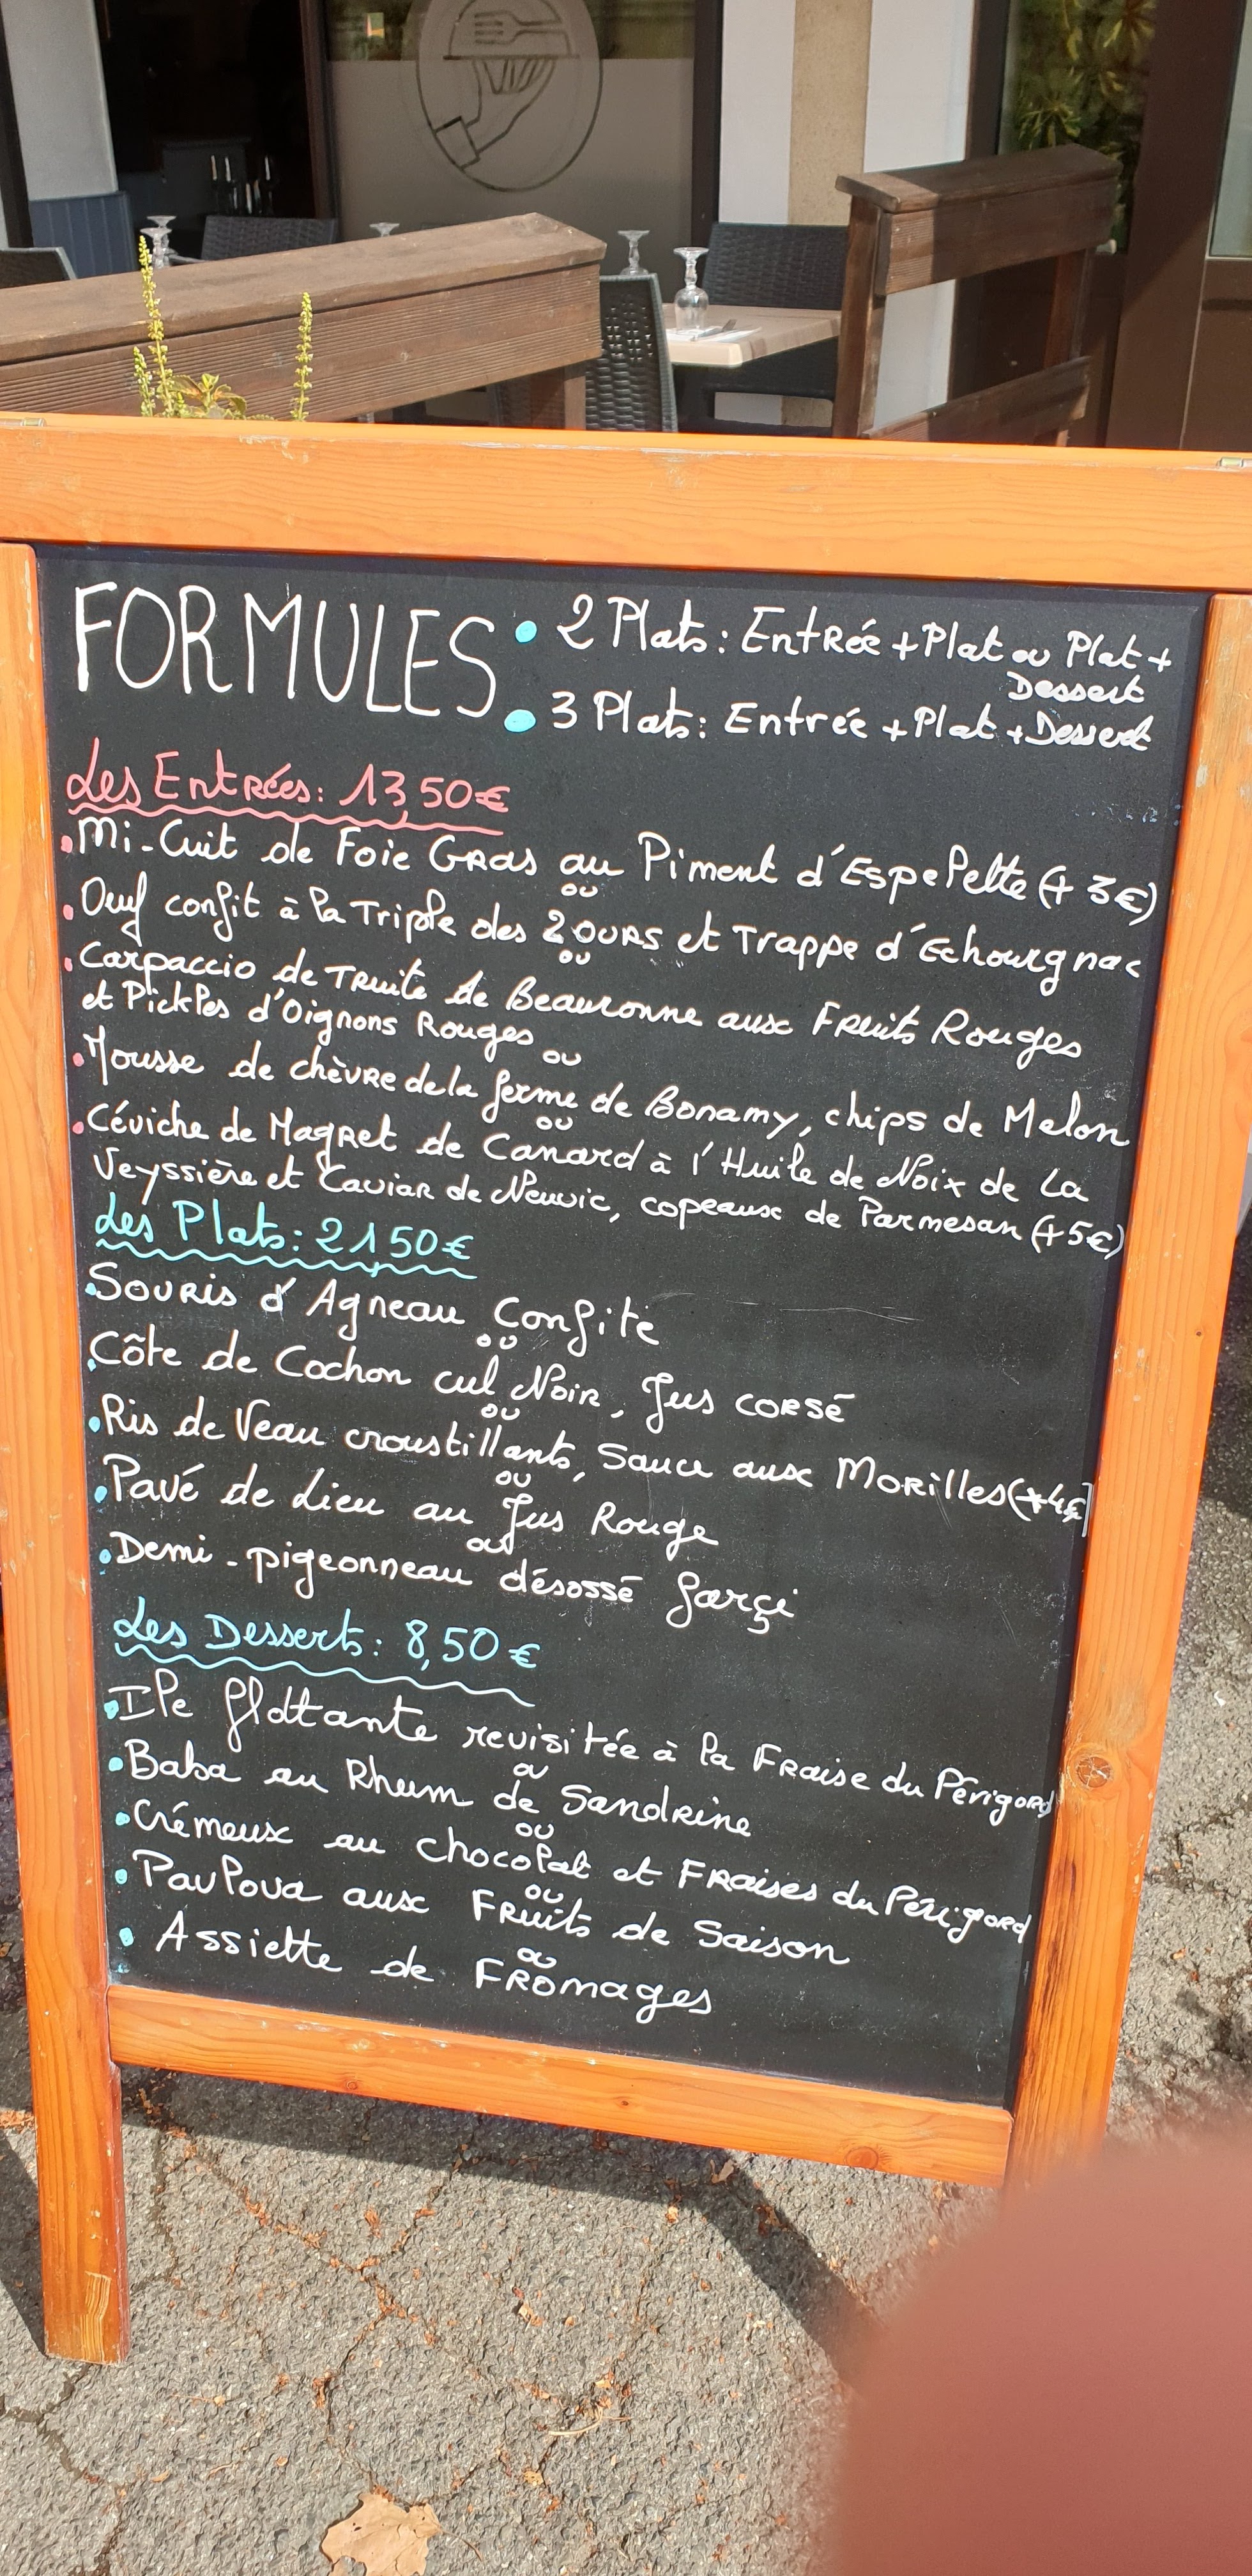 FORMULES • 2 Plats : Entrée + Plat ou Plat +
Dessert
• 3 Plats : Entrée + Plat + Dessert
Les Entrées : 13,50€
• Mi-Cuit de Foie Gras au Piment d'Espelette (+ 3€)
ou
• Oeuf confit à la Triple des 2 ours et Trappe d'Echourgnac
ou
• Carpaccio de Truite de Beauronne aux Fruits Rouges
et Pickles d'Oignons Rouges
ou
• Mousse de chèvre de la ferme de Bonamy, chips de Melon
ou
• Céviche de Magret de Canard à l'Huile de Noix de La
Veyssière et Caviar de Neuvic, copeaux de Parmesan (+5€)
Les Plats : 21,50€
• Souris d'Agneau Confite
ou
• Côte de Cochon cul Noir, Jus corsé
ou
• Ris de Veau croustillants, Sauce aux Morilles (+4€)
ou
• Pavé de Lieu au Jus Rouge
ou
• Demi-pigeonneau désossé farçi
Les Desserts : 8,50€
• Ile flottante revisitée à la Fraise du Périgord
ou
• Baba au Rhum de Sandrine
ou
• Crémeux au chocolat et Fraises du Périgord
ou
• Pavlova aux Fruits de Saison
ou
• Assiette de Fromages